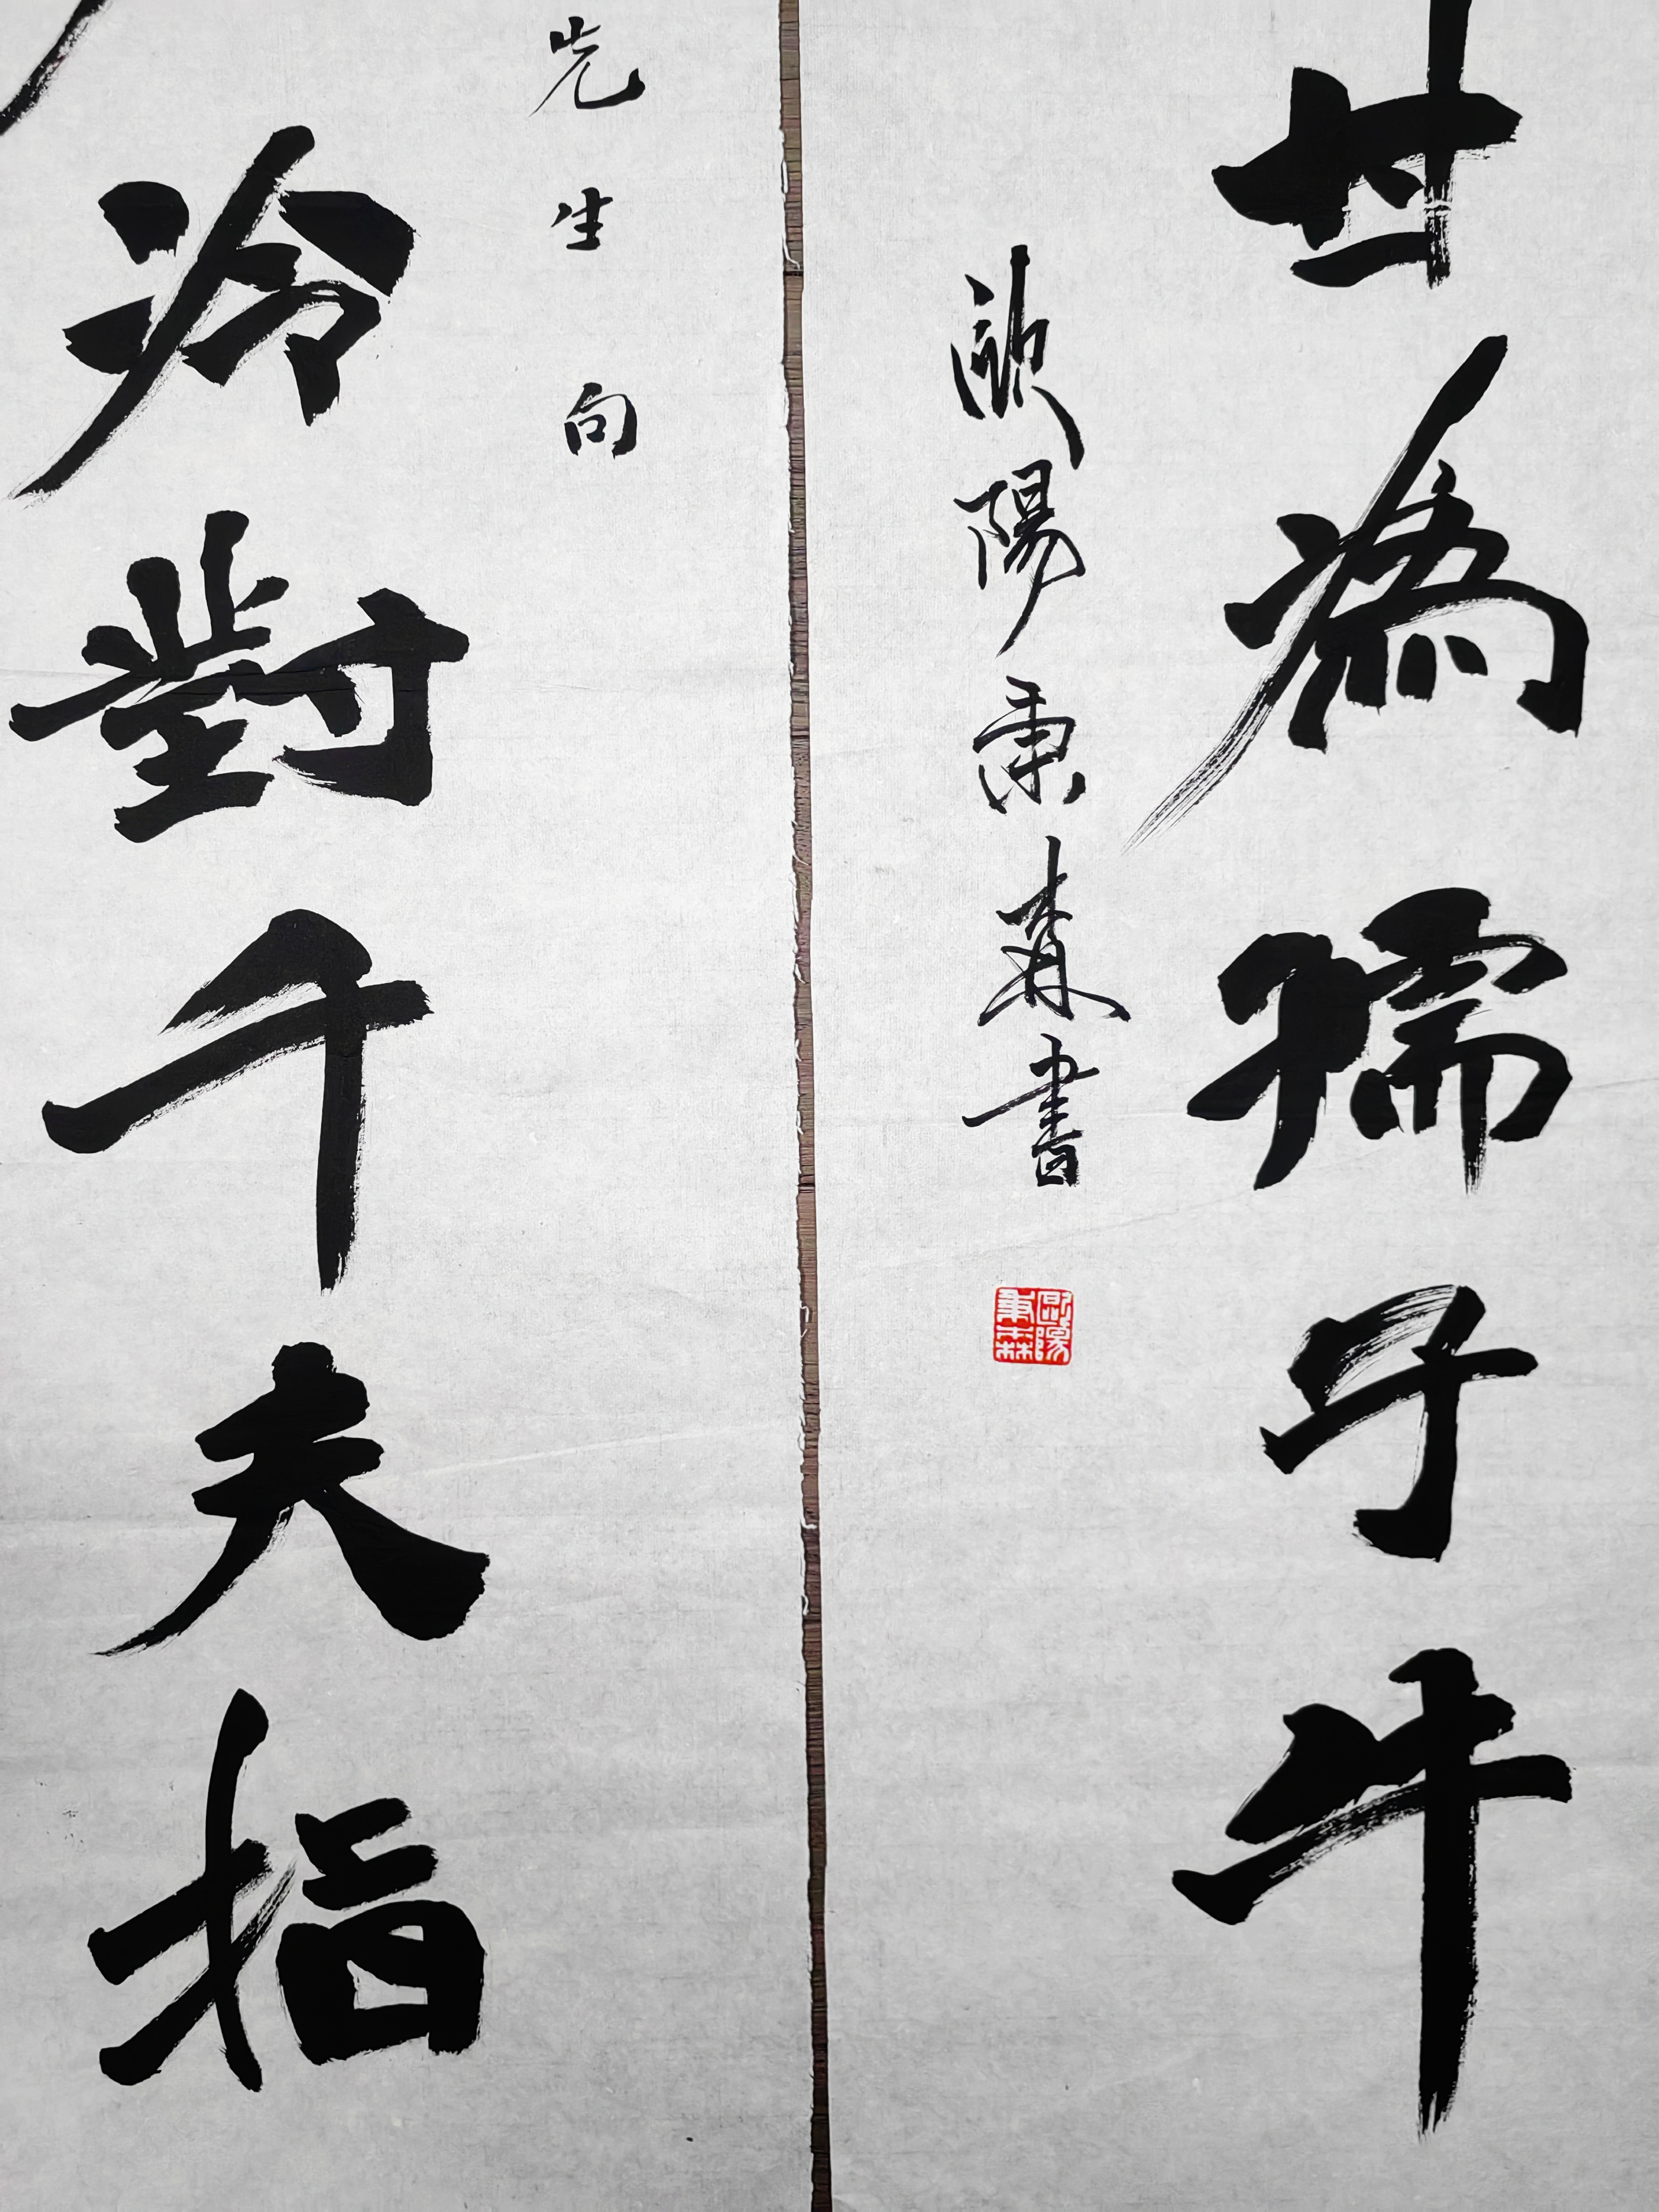 甘為孺子牛
歐陽秉森書
歐陽秉森
先生句
冷對千夫指